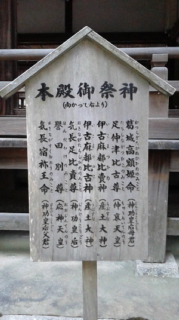 本殿御祭神
(向かって右より)
葛城高額姫命(神功皇后母君)
足仲津比古尊(仲哀天皇)
伊古麻都比賣神(産土大神)
伊古麻都比古神(産土大神)
気長足比賣尊(神功皇后)
誉田別尊(応神天皇)
気長宿祢王命(神功皇后父君)